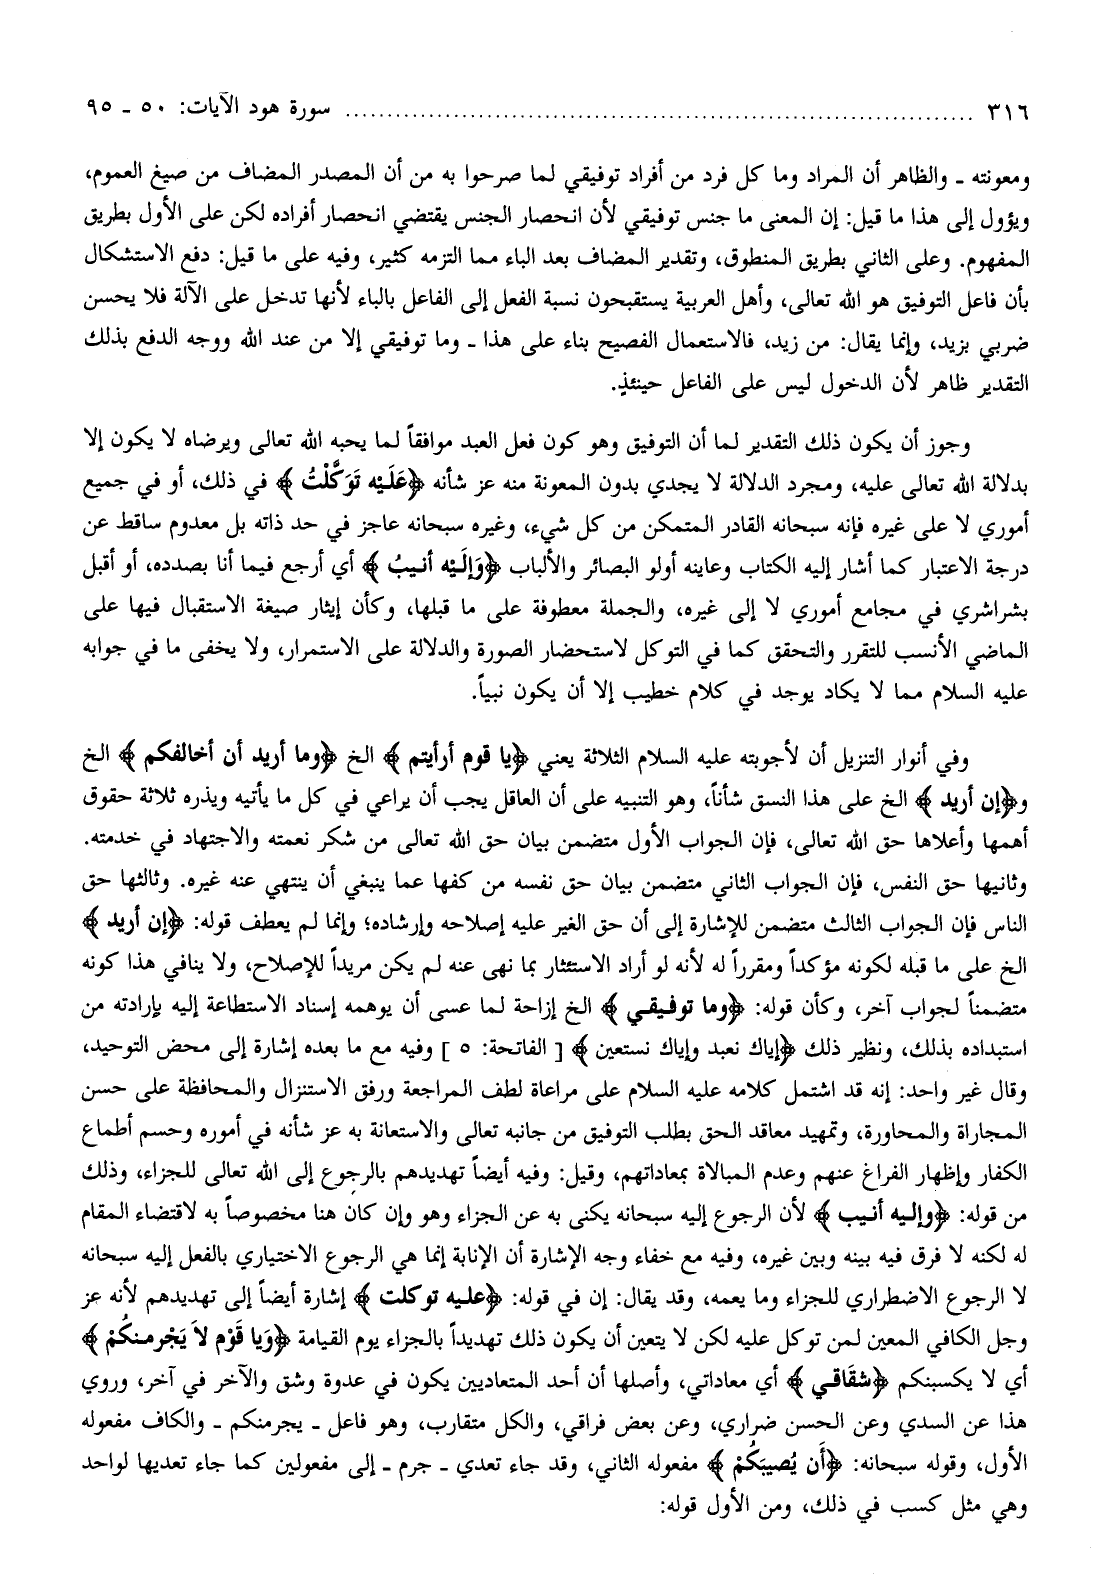 ٣١٦ ........................................................................... سورة هود الآيات: ٥٠ ـ ٩٥
ومعونته ـ والظاهر أن المراد وما كل فرد من أفراد توفيقي لما صرحوا به من أن المصدر المضاف من صيغ العموم،
ويؤول إلى هذا ما قيل: إن المعنى ما جنس توفيقي لأن انحصار الجنس يقتضي انحصار أفراده لكن على الأول بطريق
المفهوم. وعلى الثاني بطريق المنطوق، وتقدير المضاف بعد الباء مما التزمه كثير، وفيه على ما قيل: دفع الاستشكال
بأن فاعل التوفيق هو الله تعالى، وأهل العربية يستقبحون نسبة الفعل إلى الفاعل بالباء لأنها تدخل على الآلة فلا يحسن
ضربي بزيد، وإنما يقال: من زيد، فالاستعمال الفصيح بناء على هذا ـ وما توفيقي إلا من عند الله ووجه الدفع بذلك
التقدير ظاهر لأن الدخول ليس على الفاعل حينئذٍ.
وجوز أن يكون ذلك التقدير لما أن التوفيق وهو كون فعل العبد موافقاً لما يحبه الله تعالى ويرضاه لا يكون إلا
بدلالة الله تعالى عليه، ومجرد الدلالة لا يجدي بدون المعونة منه عز شأنه ﴿عَلَيْه تَوَكَّلْتُ﴾ في ذلك، أو في جميع
أموري لا على غيره فإنه سبحانه القادر المتمكن من كل شيء، وغيره سبحانه عاجز في حد ذاته بل معدوم ساقط عن
درجة الاعتبار كما أشار إليه الكتاب وعاينه أولو البصائر والألباب ﴿وَإلَيْه أنيبُ﴾ أي أرجع فيما أنا بصدده، أو أقبل
بشراشري في مجامع أموري لا إلى غيره، والجملة معطوفة على ما قبلها، وكأن إيثار صيغة الاستقبال فيها على
الماضي الأنسب للتقرر والتحقق كما في التوكل لاستحضار الصورة والدلالة على الاستمرار، ولا يخفى ما في جوابه
عليه السلام مما لا يكاد يوجد في كلام خطيب إلا أن يكون نبياً.
وفي أنوار التنزيل أن لأجوبته عليه السلام الثلاثة يعني ﴿يا قوم أرأيتم﴾ الخ ﴿وما أريد أن أخالفكم﴾ الخ
و﴿إن أريد﴾ الخ على هذا النسق شأناً، وهو التنبيه على أن العاقل يجب أن يراعي في كل ما يأتيه ويذره ثلاثة حقوق
أهمها وأعلاها حق الله تعالى، فإن الجواب الأول متضمن بيان حق الله تعالى من شكر نعمته والاجتهاد في خدمته.
وثانيها حق النفس، فإن الجواب الثاني متضمن بيان حق نفسه من كفها عما ينبغي أن ينتهي عنه غيره. وثالثها حق
الناس فإن الجواب الثالث متضمن للإشارة إلى أن حق الغير عليه إصلاحه وإرشاده؛ وإنما لم يعطف قوله: ﴿إن أريد﴾
الخ على ما قبله لكونه مؤكداً ومقرراً له لأنه لو أراد الاستئثار بما نهى عنه لم يكن مريداً للإصلاح، ولا ينافي هذا كونه
متضمناً لجواب آخر، وكأن قوله: ﴿وما توفيقي﴾ الخ إزاحة لما عسى أن يوهمه إسناد الاستطاعة إليه بإرادته من
استبداده بذلك، ونظير ذلك ﴿إياك نعبد وإياك نستعين﴾ [ الفاتحة: ٥ ] وفيه مع ما بعده إشارة إلى محض التوحيد،
وقال غير واحد: إنه قد اشتمل كلامه عليه السلام على مراعاة لطف المراجعة ورفق الاستنزال والمحافظة على حسن
المجاراة والمحاورة، وتمهيد معاقد الحق بطلب التوفيق من جانبه تعالى والاستعانة به عز شأنه في أموره وحسم أطماع
الكفار وإظهار الفراغ عنهم وعدم المبالاة بمعاداتهم، وقيل: وفيه أيضاً تهديدهم بالرجوع إلى الله تعالى للجزاء، وذلك
من قوله: ﴿وإليه أنيب﴾ لأن الرجوع إليه سبحانه يكنى به عن الجزاء وهو وإن كان هنا مخصوصاً به لاقتضاء المقام
له لكنه لا فرق فيه بينه وبين غيره، وفيه مع خفاء وجه الإشارة أن الإنابة إنما هي الرجوع الاختياري بالفعل إليه سبحانه
لا الرجوع الاضطراري للجزاء وما يعمه، وقد يقال: إن في قوله: ﴿عليه توكلت﴾ إشارة أيضاً إلى تهديدهم لأنه عز
وجل الكافي المعين لمن توكل عليه لكن لا يتعين أن يكون ذلك تهديداً بالجزاء يوم القيامة ﴿وَيا قَوْم لاَ يَجْرمنكُمْ﴾
أي لا يكسبنكم ﴿شقَاقي﴾ أي معاداتي، وأصلها أن أحد المتعاديين يكون في عدوة وشق والآخر في آخر، وروي
هذا عن السدي وعن الحسن ضراري، وعن بعض فراقي، والكل متقارب، وهو فاعل ـ يجرمنكم ـ والكاف مفعوله
الأول، وقوله سبحانه: ﴿أَن يُصيبَكُمْ﴾ مفعوله الثاني، وقد جاء تعدي ـ جرم ـ إلى مفعولين كما جاء تعديها لواحد
وهي مثل كسب في ذلك، ومن الأول قوله: